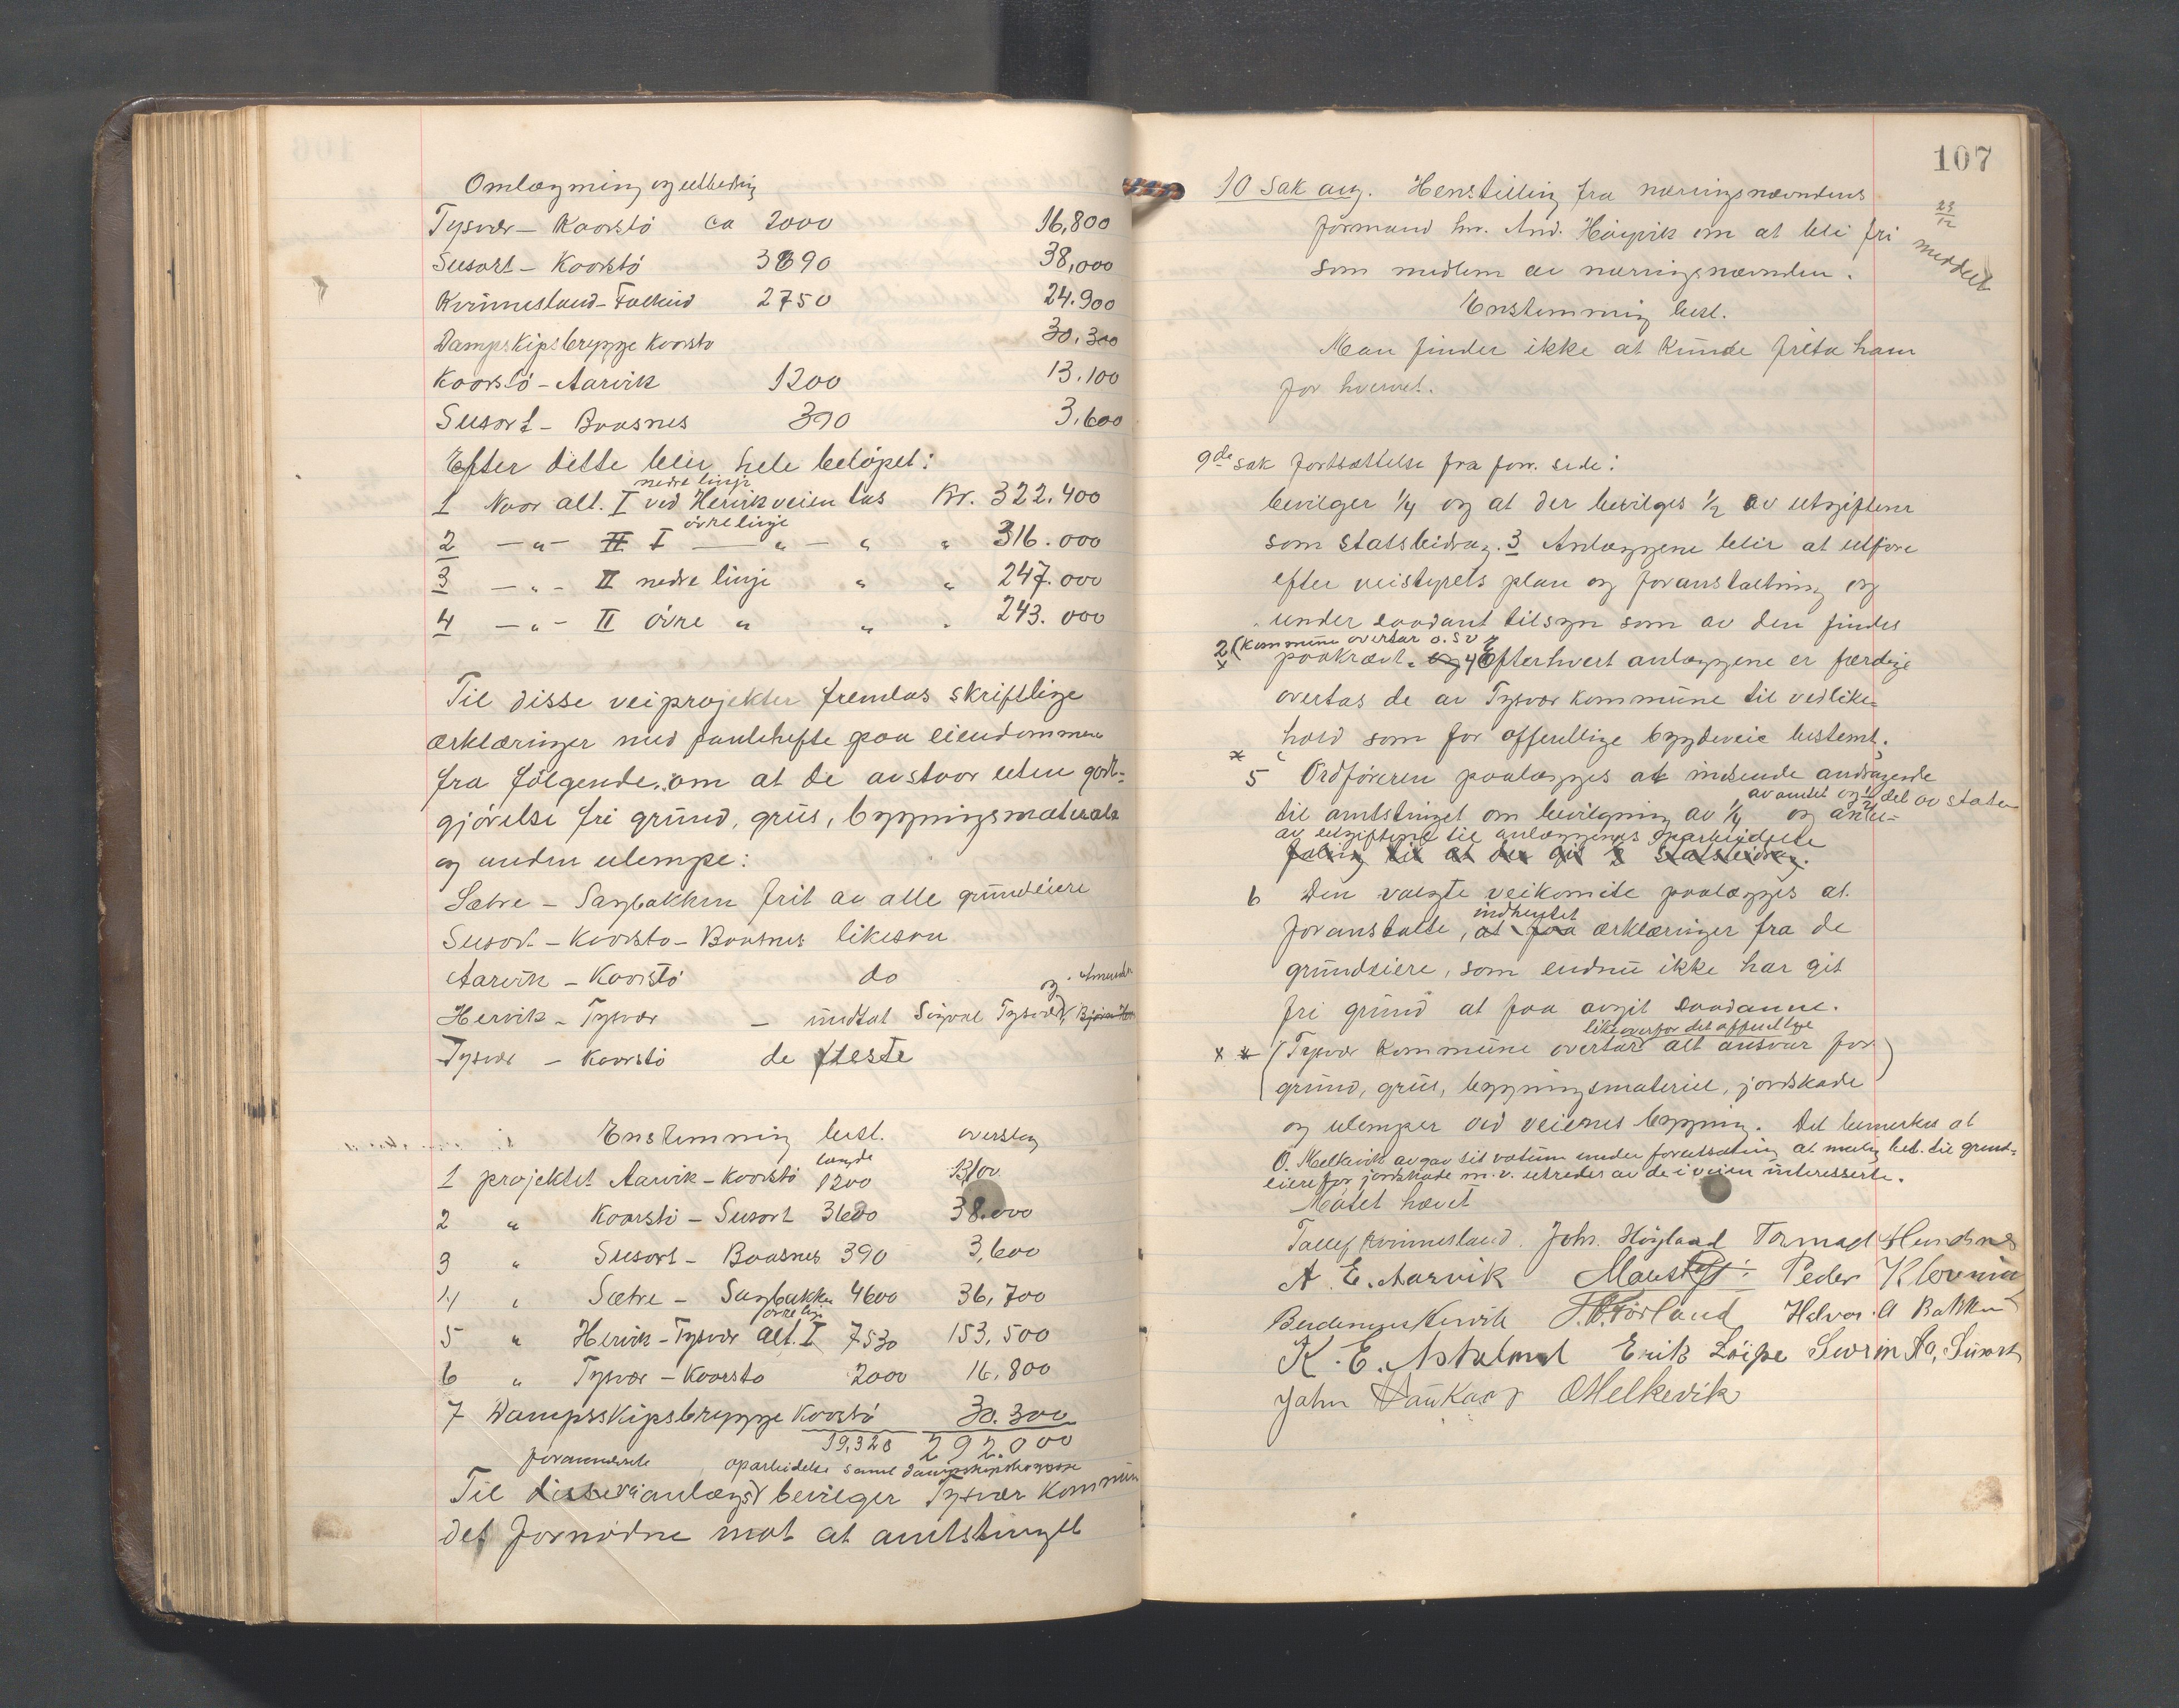 Omlægning og utbedring
Tysvær - Kaarstö ca 2000 16,800
Susort - Kaarstö 3690 38,000
Kvinnesland - Falkeid 2750 24.900
Dampskipsbrygge Kaarstø 30,300
Kaarstö - Aarvik 1200 13.100
Susort - Baasnes 390 3,600
Efter dette blir hele belöpet:
nedre linje
1 Naar alt. I ved Hervikveien tas Kr. 322.400
övre linje
2 - " - II I - " - " " 316.000
3 - " - II nedre linje " " 247.000
4 - " - II övre " " " 243.000
Til disse veiprojekter fremlas skriftlige
erklæringer med pantehefte paa eiendommene
fra fölgende, om at de avstaar uten godt-
gjörelse fri grund, grus, bygningsmateriale
og anden ulempe:
Sætre - Sagbakken frit av alle grundeiere
Susort - Kaarstø - Baasnes likesaa
Aarvik - Kaarstö do
og Amunds
Hervik - Tysvær - undtat Sigval Tysvær,
Tysvær - Kaarstö de fleste
Enstemmig besl. overslag
længde
1 projektet Aarvik - Kaarstö 1200 13100
2 " Kaarstö - Susort 3600 38.000
3 " Susort - Baasnes 390 3,600
4 " Sætre - Sagbakken 4600 36,700
övre linje
5 " Hervik - Tysvær alt. I 7530 153,500
6 " Tysvær - Kaarstø 2000 16,800
7 Dampsskipsbrygge Kaarstö 30.300
19,320 292.000
forannævnte oparbeidelse samt dampskipsbrygge
Til disse veianlæg bevilger Tysvær Kommune
det fornödne mot at amtstinget
107
10 Sak ang. Henstilling fra næringsnævndens
formand hr. And. Höivik om at bli fri
som medlem av næringsnævnden.
23/12 meddelt
Enstemmig besl.
Man finder ikke at kunde frita ham
for hvervet.
9de sak fortsættelse fra forr. side:
bevilger 1/4 og at der bevilges 1/2 av utgiftene
som statsbidrag. 3 Anlæggene blir at utföre
efter veistyrets plan og foranstaltning og
under saadant tilsyn som av den findes
2 (Kommune overtar o.s.v
x paakrævt. og 4 Efterhvert anlæggene er færdige
overtas de av Tysvær kommune til vedlike-
hold som for offentlige bygdeveie bestemt.
x
5 Ordföreren paalægges at indsende andragende
av amtet og 1/2 del av staten
til amtstinget om bevilgning av 1/4 og anbe-
av utgiftene til anlæggenes oparbeidelse
faling til at der gis 1/2 statsbidrag.
6 Den valgte veikomite paalægges at
indhentet
foranstalte, at faa erklæringer fra de
grundeiere, som endnu ikke har git
fri grund at faa avgit saadanne.
likeoverfor det offentlige
x x (Tysvær kommune overtar alt ansvar for)
grund, grus, bygningsmateriel, jordskade
og ulemper ved veienes bygning. Det bemerkes at
O. Melkevik avgav sit votum under forutsætning at mulig bet. til grund-
eiere for jordskade m.v. utredes av de i veien interesserte.
Mötet hævet
Tallef Kvinnesland. Johs. Höyland Tormod Hundsnes
A. E. Aarvik Peder Klovning
Hervik Förland Halvor. A Bakken
K. E. Erik Löipe Sevrin Aa, Susort
John Vaukaar OMelkevik